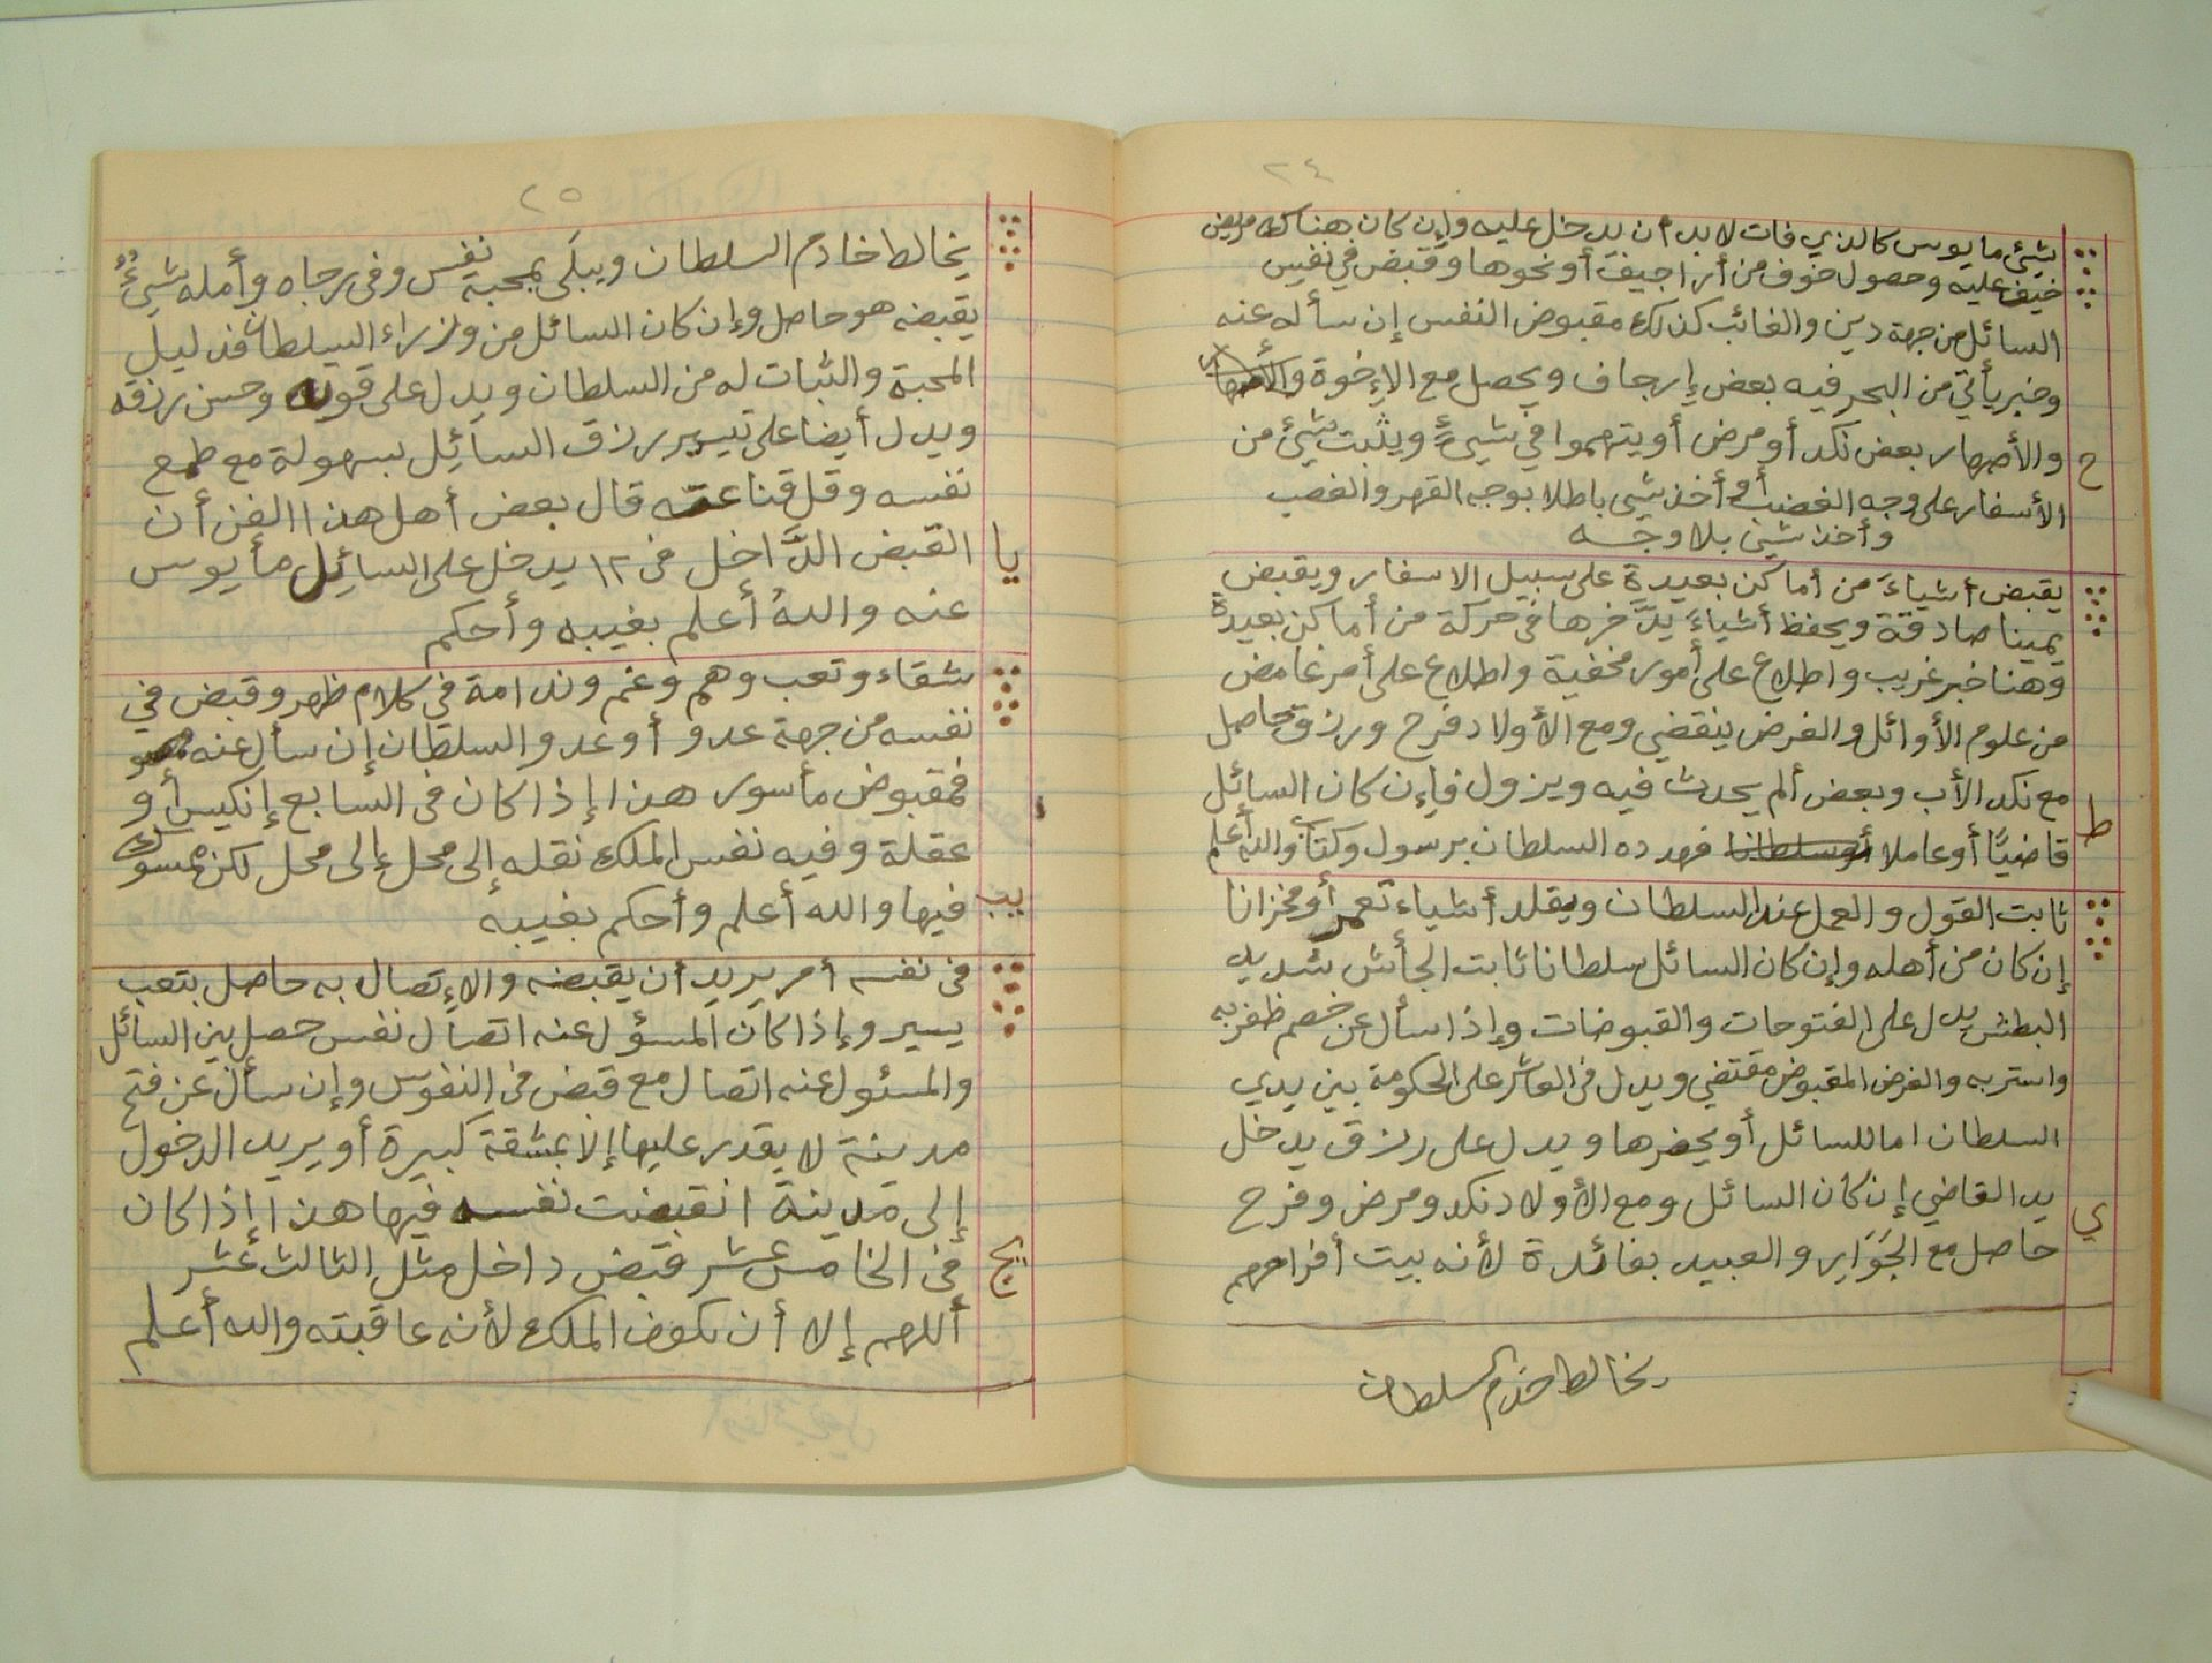 ٢٤
شيئ مايوس كالذي فات لابد أن يدخل عليه وإن كان هناك مريض
خيف عليه وحصول خوف من أراجيف أو نحوها وقبض في نفس
السائل من جهة دين والغائب كذلك مقبوض النفس إن سأله عنه
وخبر يأتي من البحر فيه بعض إرجاف ويحصل مع الإخوة والأصهار
ح والأصهار بعض نكد أو مرض أو يتهموا في شيئ ويثبت شيئ من
الأسفار على وجه الغضب أو أخذ شيئ باطلا بوجه القهر والغصب
وأخذ شيئ بلا وجه
يقبض أشياءً من أماكن بعيدة على سبيل الاسفار ويقبض
يمينا صادقة ويحفظ أشياءً يدَّخرها في حركة من أماكن بعيدة
وهنا خبر غريب واطلاع على أمور مخفية واطلاع على أمر غامض
من علوم الأوائل والغرض ينقضي ومع الأولاد فرح ورزق حاصل
مع نكد الأب وبعض ألم يحدث فيه ويزول فإن كان السائل
ط قاضيًا أو عاملا أو سلطانا فهدده السلطان برسول وكتاب والله أعلم
ثابت القول والعمل عند السلطان ويقلد أشياء تعمر أو مخزانا
إن كان من أهله وإن كان السائل سلطانا ثابت الجأش شديد
البطش يدل على الفتوحات والقبوضات وإذا سأل عن خصم ظفر به
واستر به والغرض المقبوض مقتضي ويدل في العاشر على الحكومة بين يدي
السلطان اما للسائل أو يحضرها ويدل على رزق يدخل
ي يد القاضي إن كان السائل ومع الأولاد نكد ومرض وفرح
حاصل مع الجَوَارِ والعبيد بفائدة لأنه بيت أفراحهم
يخالط خدم السلطان
٢٥
يخالط خادم السلطان ويبلَى بمحبة نفيس وفي رجاه وأمله شيئٌ
يقبضه هو حاصل وإن كان السائل من وزراء السلطان فذليل
المحبة والثبات له من السلطان ويدل على قوته وحسن رزقه
ويدل أيضا على تيسير رزق السائل بسهولة مع طمع
نفسه وقل قناعته قال بعض أهل هذا الفن أن
يا القبض الدَّاخل في ١٢ يدخل على السائل مأيوس
عنه واللهُ أعلم بغيبه وأحكم
شقاء وتعب وهم وغم وندامة في كلام ظهر وقبض في
نفسه من جهة عدو أو عدو السلطان إن سأل عنه هو
فمقبوض مأسور هذا إذا كان في السابع إنكيس أو
عقلة وفيه نفس الملك نقله إلى محل إلى محل لكن مسرور
يب فيها والله أعلم وأحكم بغيبه
في نفسه أمر يريد أن يقبضه والإتصال به حاصل بتعب
يسير وإذا كان المسؤل عنه اتصال نفس حصل بين السائل
والمسئول عنه اتصال مع قبض في النفوس وإن سأل عن فتح
مدينة لا يقدر عليها إلا بمشقة كبيرة أو يريد الدخول
إلى مدينة انقبضت نفسه فيها هذا إذا كان
يج في الخامس عشر قبض داخل مثل الثالث عشر
أللهم إلا أن يكون الملك لأنه عاقبته والله أعلم